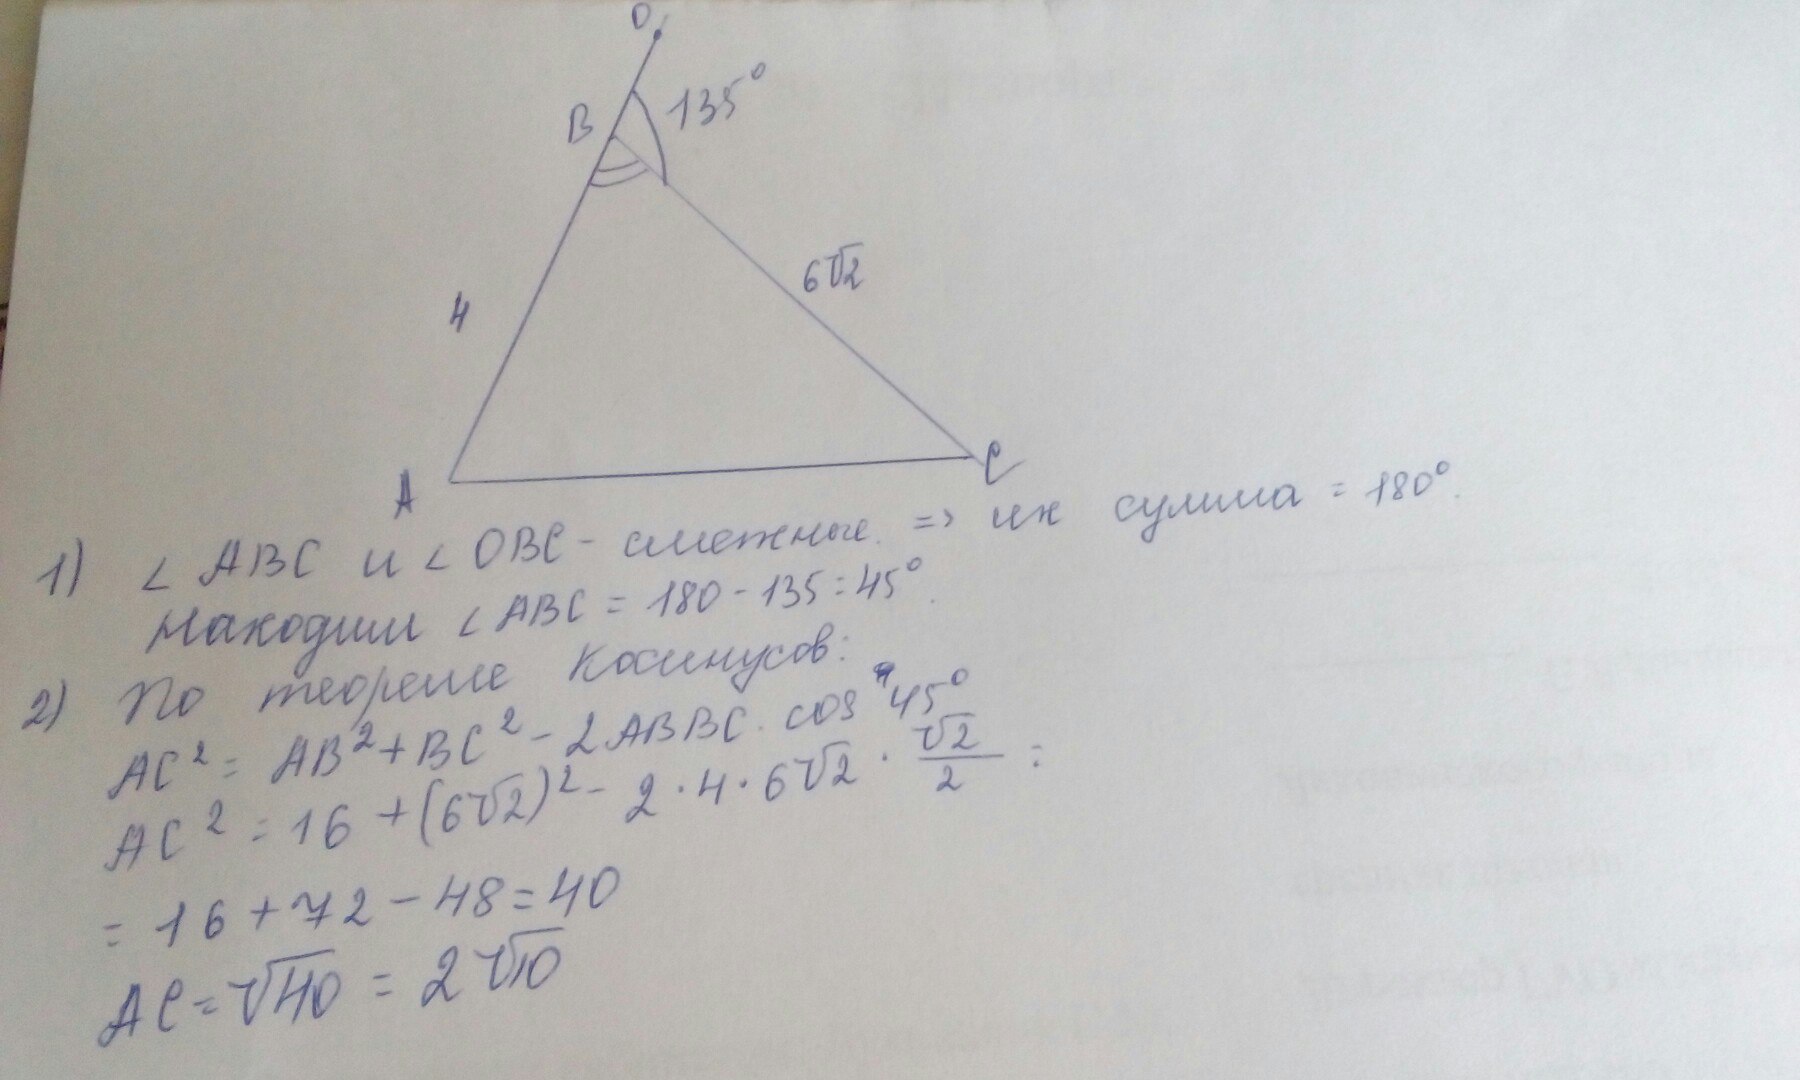 O
B
135°
4
6√2
A
C
1) ∠ ABC и ∠ OBC - смежные. => их сумма = 180°.
Находим ∠ ABC = 180 - 135 = 45°.
2) По теореме косинусов:
AC² = AB² + BC² - 2ABBC · cos 45°
AC² = 16 + (6√2)² - 2 · 4 · 6√2 · √2/2 =
= 16 + 72 - 48 = 40
AC = √40 = 2√10